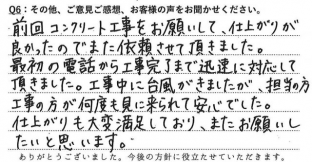 Q6：その他、ご意見ご感想、お客様の声をお聞かせください。
前回コンクリート工事をお願いして、仕上がりが
良かったのでまた依頼させて頂きました。
最初の電話から工事完了まで迅速に対応して
頂きました。工事中に台風がきましたが、担当の方
工事の方が何度も見に来られて安心でした。
仕上がりも大変満足しており、またお願いし
たいと思います。
ありがとうございました。今後の方針に役立たせていただきます。